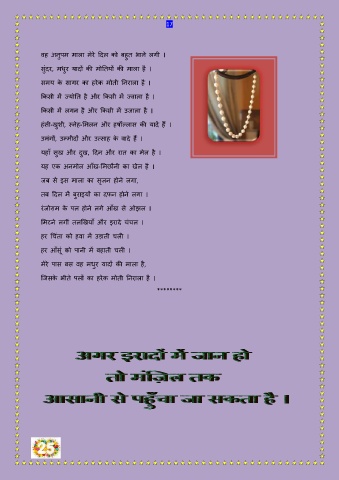 57
वह अनुपम माला मेरे दिल को बहुत भाने लगी ।
सुंदर, मधुर यादों की मोतियों की माला है ।
समय के सागर का हरेक मोती निराला है ।
किसी में ज्योति है और किसी में ज्वाला है ।
किसी में लगन है और किसी में उजाला है ।
हंसी-खुशी, स्नेह-मिलन और हर्षोल्लास की यादें हैं ।
उमंगों, उम्मीदों और उत्साह के वादे हैं ।
यहाँ सुख और दुख, दिन और रात का मेल है ।
यह एक अनमोल आँख-मिचौनी का खेल है ।
जब से इस माला का सृजन होने लगा,
तब दिल में बुराइयों का दफन होने लगा ।
रंजोगम के पल होने लगे आँख से ओझल ।
मिटने लगी तलखियाँ और इरादे चंचल ।
हर चिंता को हवा में उड़ाती चली ।
हर आँसू को पानी में बहाती चली ।
मेरे पास बस वह मधुर यादों की माला है,
जिसके बीते पलों का हरेक मोती निराला है ।
********
अगर इरादों में जान हो
तो मंज़िल तक
आसानी से पहुँचा जा सकता है ।
25